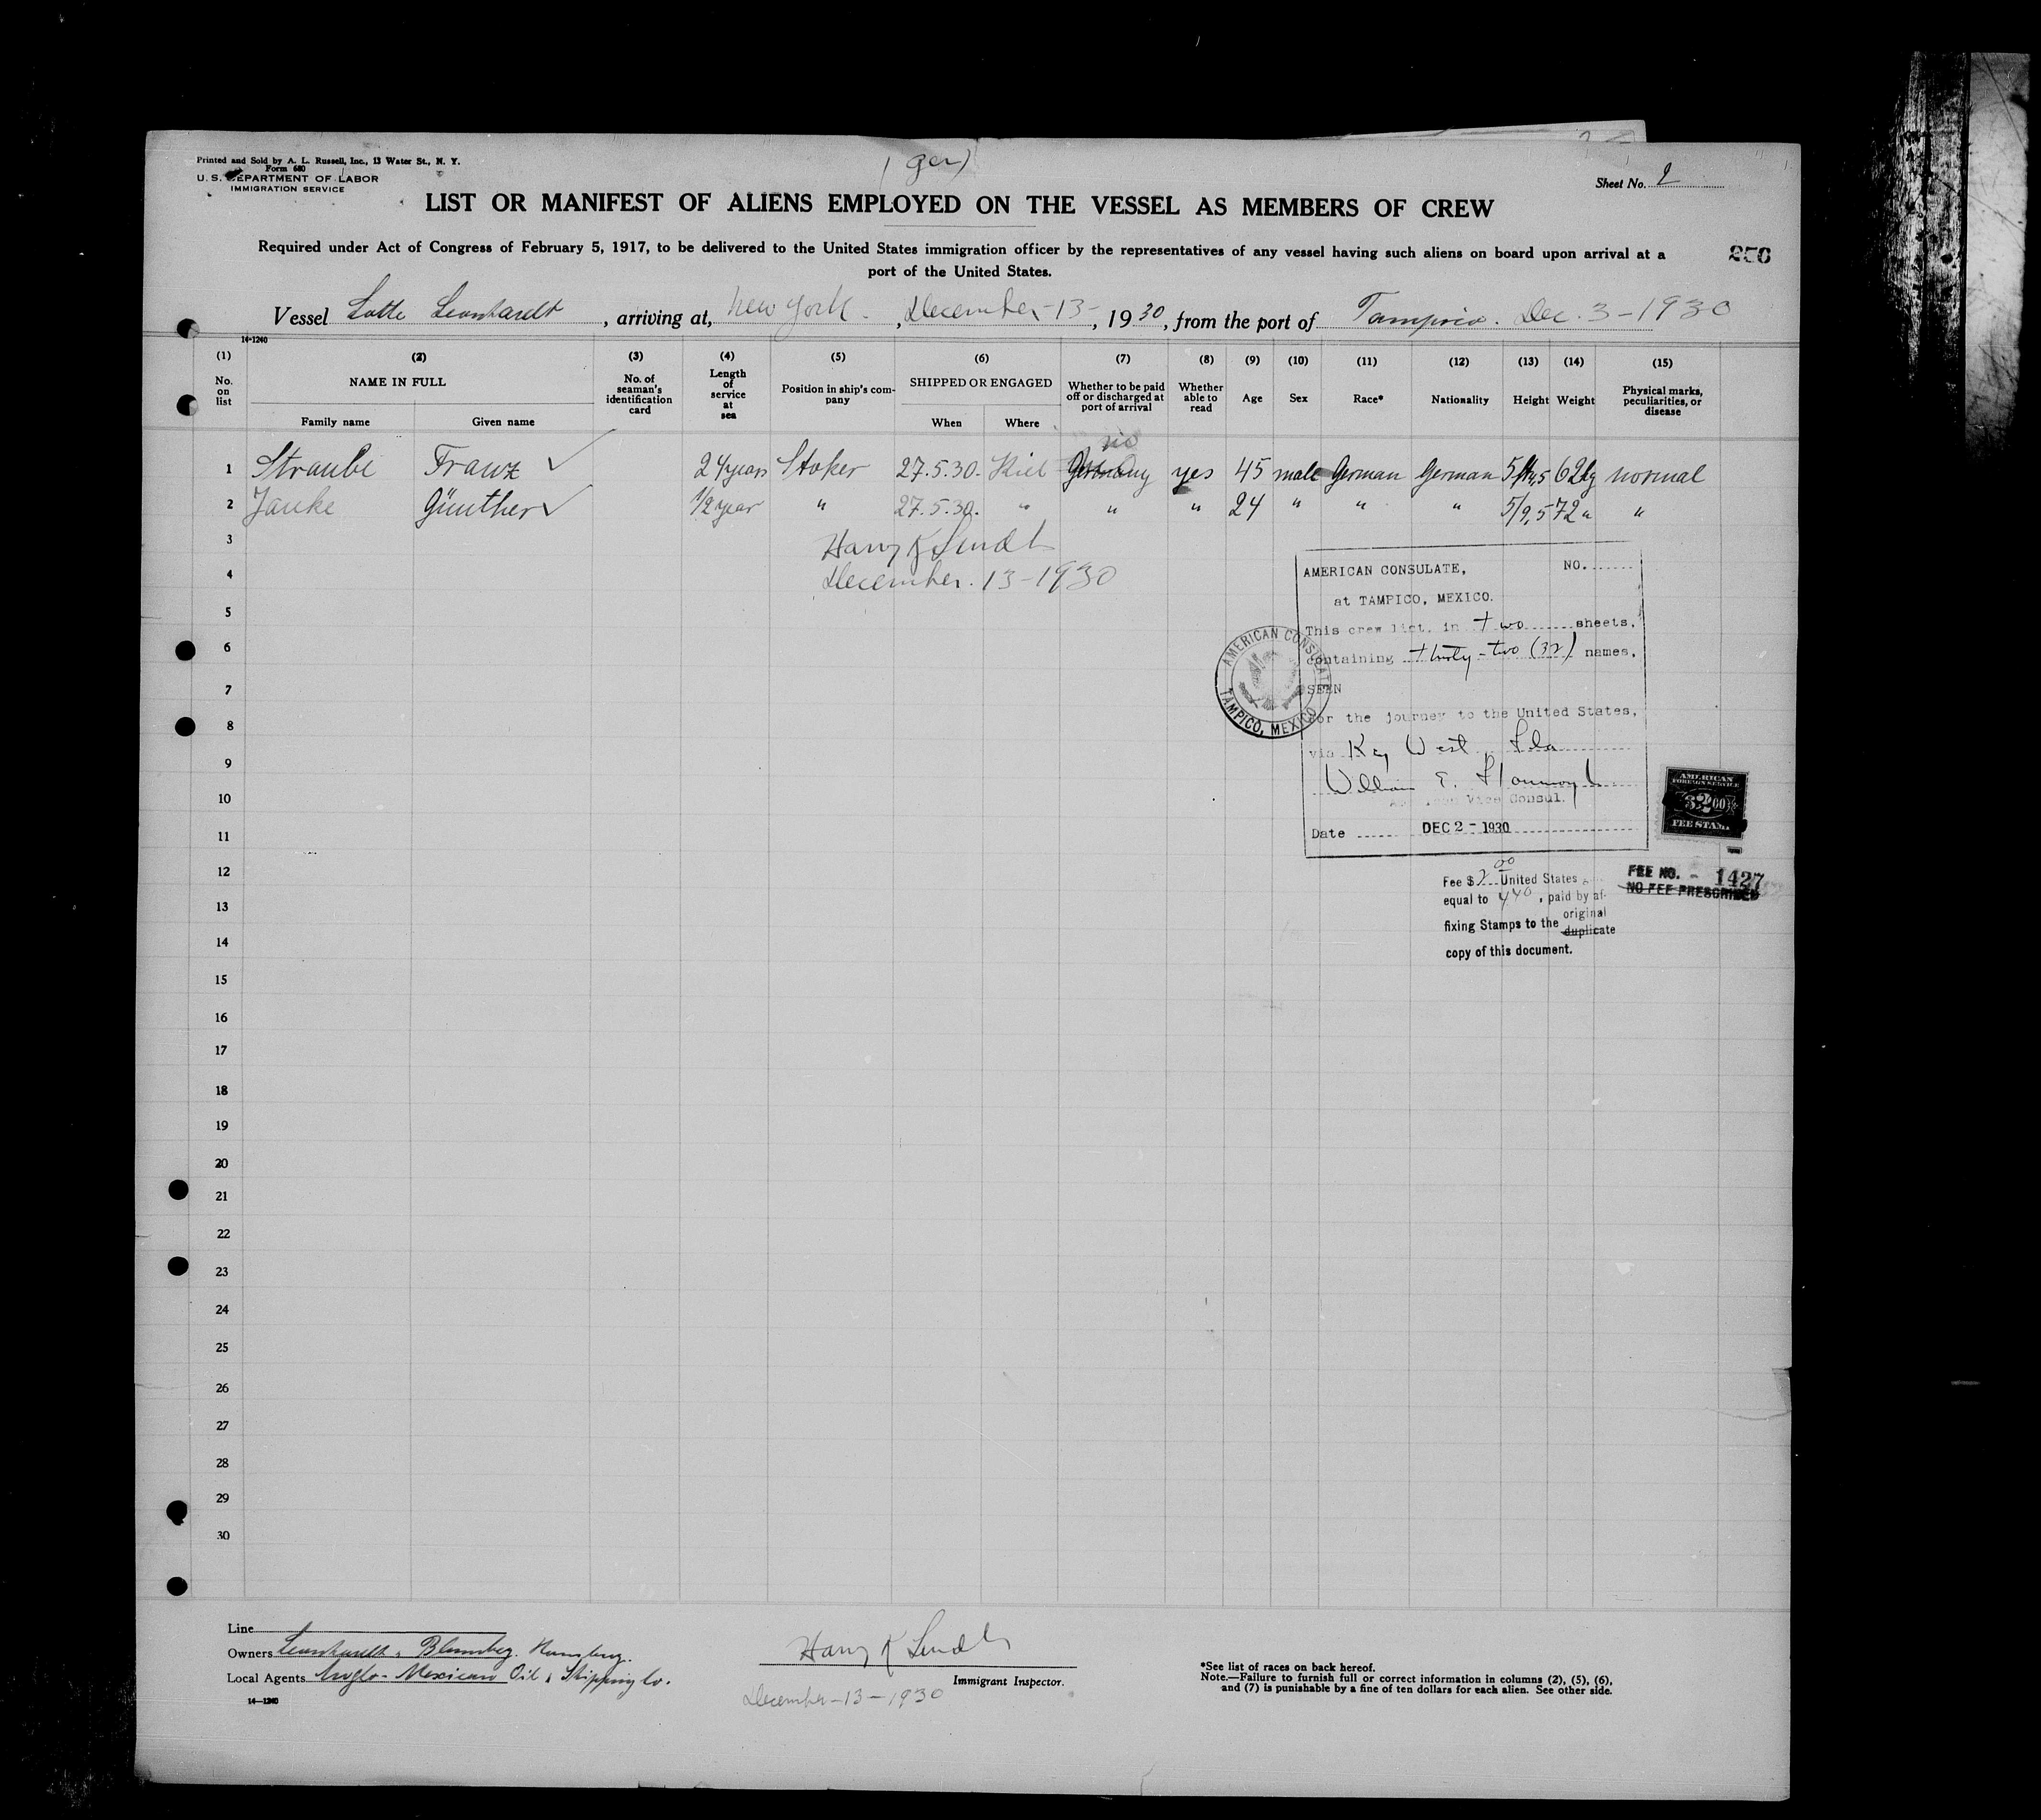 Printed and Sold by A. L. Russell, Inc., 13 Water St., N. Y.
Form 680
U. S. DEPARTMENT OF LABOR
IMMIGRATION SERVICE
Sheet No. 2
LIST OR MANIFEST OF ALIENS EMPLOYED ON THE VESSEL AS MEMBERS OF CREW
Required under Act of Congress of February 5, 1917, to be delivered to the United States immigration officer by the representatives of any vessel having such aliens on board upon arrival at a
port of the United States.
Vessel Lotte Leonhardt, arriving at, New York, December-13-, 1930, from the port of Tampico. Dec. 3-1930
14-1240
(1) (2) (3) (4) (5) (6) (7) (8) (9) (10) (11) (12) (13) (14) (15)
No. on list NAME IN FULL No. of seaman's identification card Length of service at sea Position in ship's company SHIPPED OR ENGAGED Whether to be paid off or discharged at port of arrival Whether able to read Age Sex Race* Nationality Height Weight Physical marks, peculiarities, or disease
Family name Given name When Where
no
1 Straube Franz 24 years Stoker 27.5.30. Kiel Germany yes 45 male German German 62kg normal
2 Janke Günther 1/2 year " 27.5.30. " " " 24 " " " 5/9,5 72 " "
3
Harry K Lindt
4
December. 13-1930
AMERICAN CONSULATE, NO.
at TAMPICO, MEXICO.
5
This crew list, in two sheets,
6
containing thirty-two (32) names,
AMERICAN CONSULATE
TAMPICO, MEXICO
7
SEEN
8
for the journey to the United States,
via Key West, Fla
9
William E.
10
Vice Consul.
11
Date DEC 2 - 1930
AMERICAN
FOREIGN SERVICE
FEE STAMP
12
FEE NO. 1427
NO FEE PRESCRIBED
Fee $2.00 United States
equal to 4.40, paid by af-
13
fixing Stamps to the original
duplicate
14
copy of this document.
15
16
17
18
19
20
21
22
23
24
25
26
27
28
29
30
Line
Owners Leonhardt & Blumberg. Hamburg.
Local Agents Anglo-Mexican Oil & Shipping Co.
14—1240
Harry K Lindt
Immigrant Inspector.
December-13-1930
*See list of races on back hereof.
Note.—Failure to furnish full or correct information in columns (2), (5), (6),
and (7) is punishable by a fine of ten dollars for each alien. See other side.